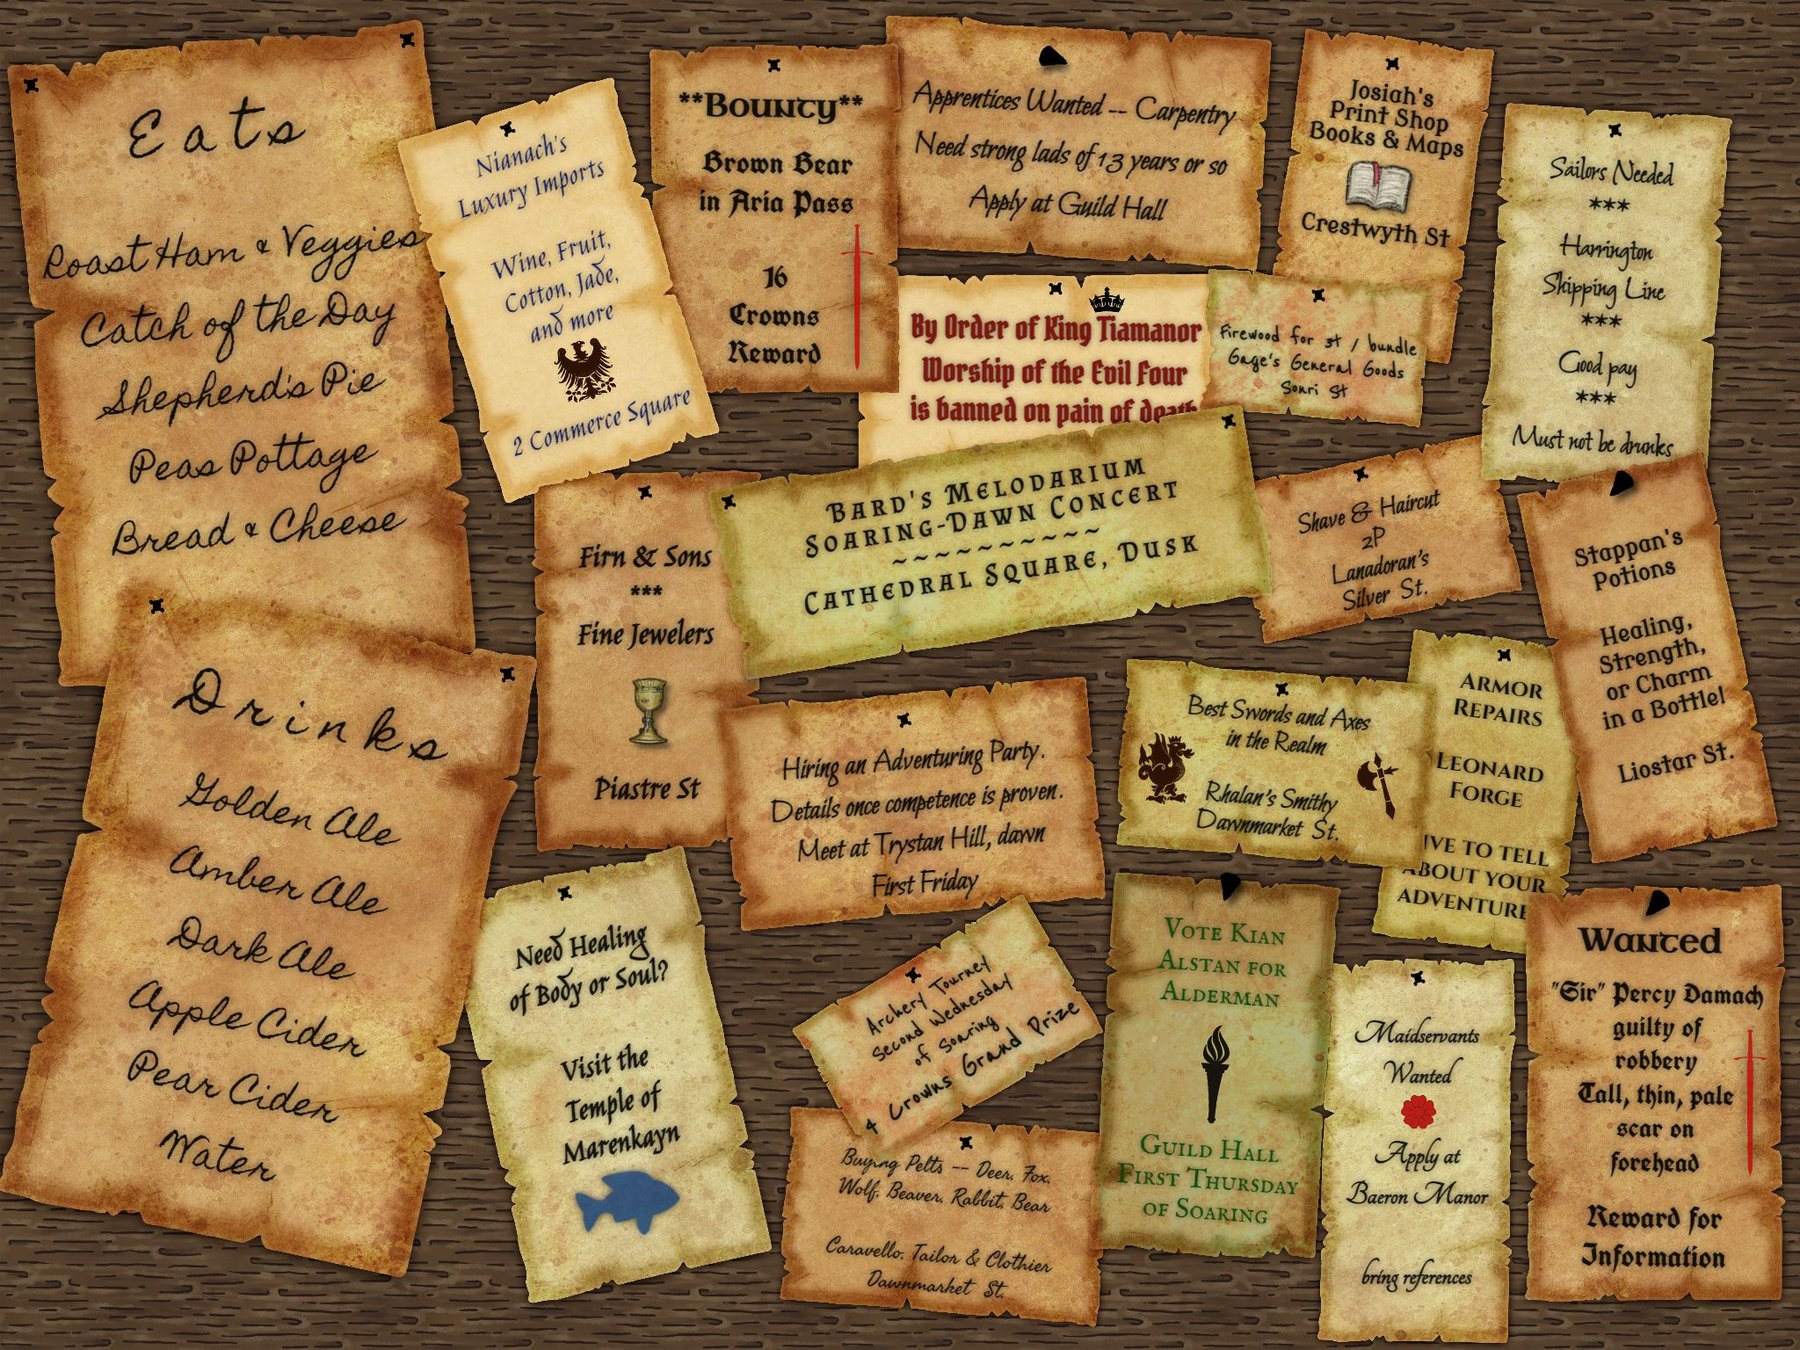 Eats
Roast Ham & Veggies
Catch of the Day
Shepherd's Pie
Peas Pottage
Bread & Cheese
Drinks
Golden Ale
Amber Ale
Dark Ale
Apple Cider
Pear Cider
Water
Nianach's
Luxury Imports
Wine, Fruit,
Cotton, Jade,
and more
2 Commerce Square
**Bounty**
Brown Bear
in Aria Pass
16
Crowns
Reward
Apprentices Wanted -- Carpentry
Need strong lads of 13 years or so
Apply at Guild Hall
Josiah's
Print Shop
Books & Maps
Crestwyth St
Sailors Needed
***
Harrington
Shipping Line
***
Good pay
***
Must not be drunks
By Order of King Tiamanor
Worship of the Evil Four
is banned on pain of death
Firewood for 3t / bundle
Gage's General Goods
Sonri St
Firn & Sons
***
Fine Jewelers
Piastre St
Bard's Melodarium
Soaring-Dawn Concert
~~~~~~~~~~
Cathedral Square, Dusk
Shave & Haircut
2P
Lanadoran's
Silver St.
Stappan's
Potions
Healing,
Strength,
or Charm
in a Bottle!
Liostar St.
Hiring an Adventuring Party.
Details once competence is proven.
Meet at Trystan Hill, dawn
First Friday
Best Swords and Axes
in the Realm
Rhalan's Smithy
Dawnmarket St.
Armor
Repairs
Leonard
Forge
ive to tell
about your
adventure
Need Healing
of Body or Soul?
Visit the
Temple of
Marenkayn
Archery Tourney
Second Wednesday
of Soaring
4 Crowns Grand Prize
Buying Pelts -- Deer, Fox,
Wolf, Beaver, Rabbit, Bear
Caravello, Tailor & Clothier
Dawnmarket St.
Vote Kian
Alstan for
Alderman
Guild Hall
First Thursday
of Soaring
Maidservants
Wanted
Apply at
Baeron Manor
bring references
Wanted
"Sir" Percy Damach
guilty of
robbery
Tall, thin, pale
scar on
forehead
Reward for
Information